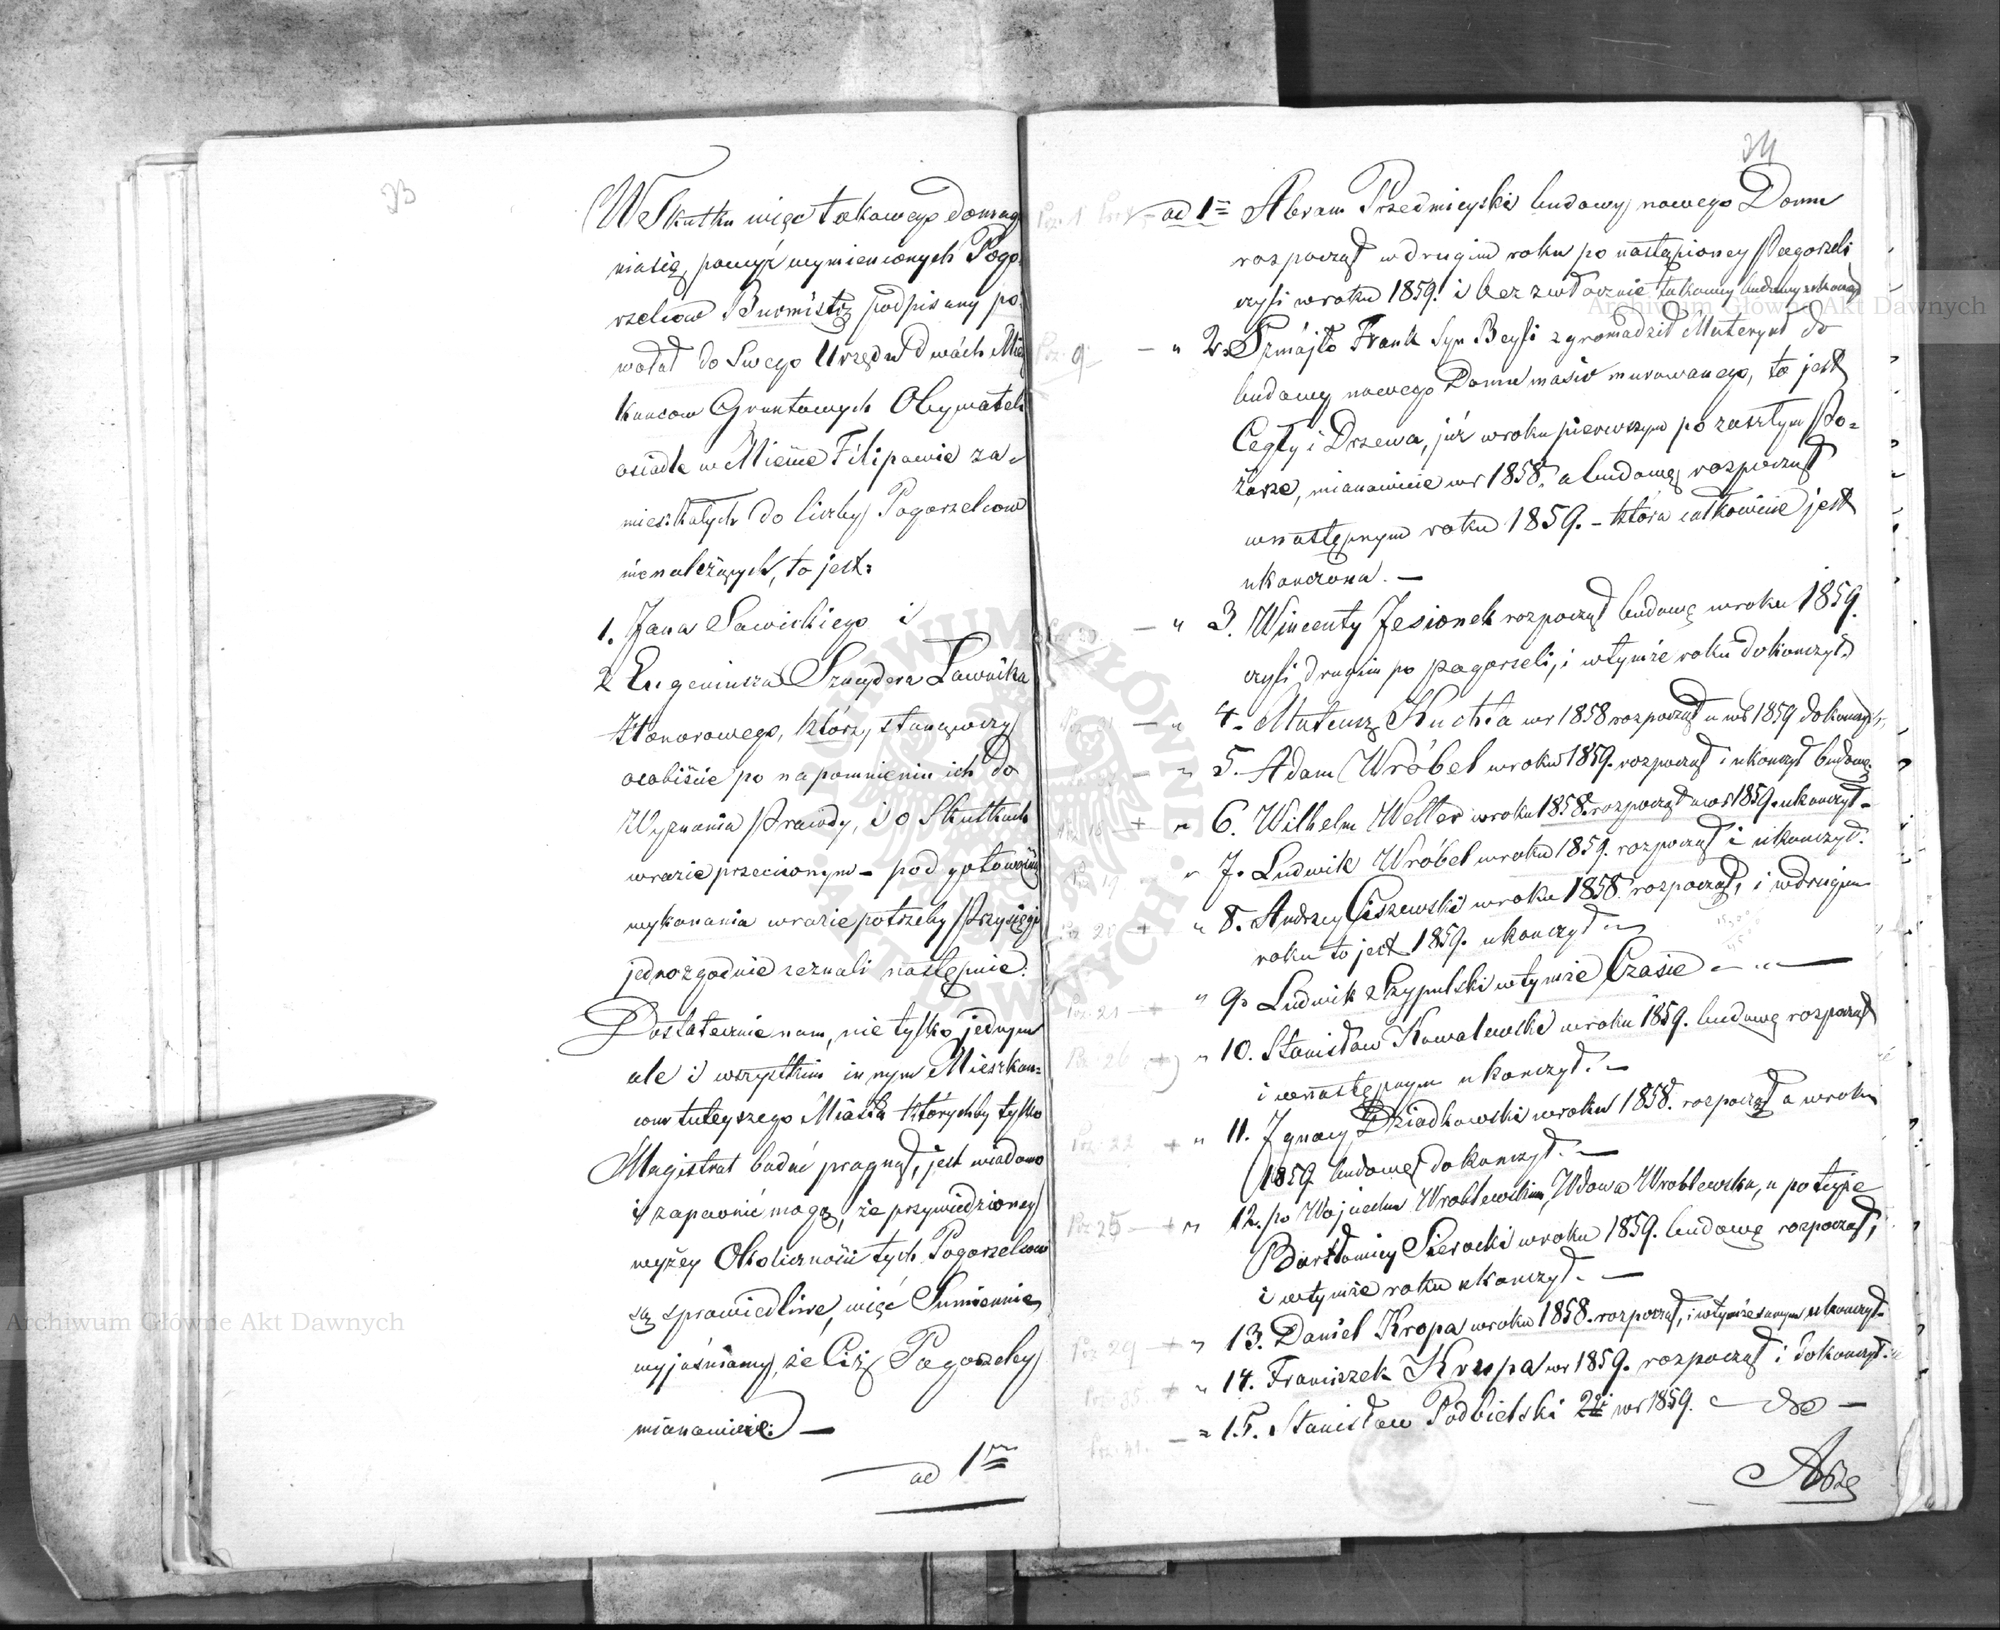 23
W Skutku więc takowego domaga
nia się, powyż wymienionych Pogo-
rzelców Burmistrz podpisany po-
wołał do Swego Urzędu dwóch Miesz
kańców Gruntowych Obywateli
osiadłe w Mieście Filipowie za-
mieszkałych do liczby Pogorzelców
nienależących, to jest:
1. Jana Sawickiego i
2 Eugeniusza Sznejdera Ławnika
Honorowego, którzy stanąwszy
osobiście po napomnieniu ich do
Wyznania Prawdy, i o Skutkach
w razie przeciwnym - pod gotowością
wykonania w razie potrzeby Przysięgi
jednozgodnie zeznali następnie:
Dostatecznie nam, nie tylko jednym
ale i wszystkim innym Mieszkań-
com tuteyszego Miasta których by tylko
Magistrat badać pragnął, jest wiadomo
i zapewnić mogą, że przywiedzioney
wyżey Okoliczności tych Pogorzelców
są sprawiedliwe, więc Sumiennie
wyjaśniamy, że Ciż Pogorzelcy
mianowicie: —
ad 1
24
ad 1 Abram Przedmieyski budowy nowego Domu
rozpoczął w drugim roku po nastąpioney Pogorzeli
czyli w roku 1859. i bezzwłocznie takowy budowy ukończył
" 2. Szmójło Frank Syn Beyli zgromadził Materyał do
budowy nowego Domu masiv murowanego, to jest
Cegły i Drzewa, już w roku pierwszym po zaszłym Po-
żarze, mianowicie w r 1858. a budowę rozpoczął
w następnym roku 1859. - która całkowicie jest
ukończona. —
" 3. Wincenty Jesionek rozpoczął budowę w roku 1859.
czyli drugim po pogorzeli, i w tymże roku dokończył
" 4. Mateusz Kuchta w r 1858 rozpoczął a w r 1859 dokończył,
" 5. Adam Wróbel w roku 1859. rozpoczął i ukończył budowę.
" 6. Wilhelm Weller w roku 1858. rozpoczął a w r 1859. ukończył -
" 7. Ludwik Wróbel w roku 1859. rozpoczął i ukończył.
" 8. Andrzey Ciszewski w roku 1858. rozpoczął, i w drugim
roku to jest 1859. ukończył
" 9. Ludwik Szypulski w tymże Czasie — " —
" 10. Stanisław Kowalewski w roku 1859. budowę rozpoczął
i w następnym ukończył. —
" 11. Ignacy Dziadkowski w roku 1858. rozpoczął a w roku
1859. budowę dokończył. —
" 12. po Wojciechu Wróblewskim, Wdowa Wróblewska, a po teyże
Bartłomiey Sieracki w roku 1859. budowę rozpoczął,
i w tymże roku ukończył. —
" 13. Daniel Kropa w roku 1858. rozpoczął, i w tymże samym ukończył.
" 14. Franciszek Krupa w r 1859. rozpoczął i dokończył.
" 15. Stanisław Podbielski 2gi w r 1859. — do —
Archiwum Główne Akt Dawnych
Archiwum Główne Akt Dawnych
ARCHIWUM GŁÓWNE · AKT DAWNYCH ·